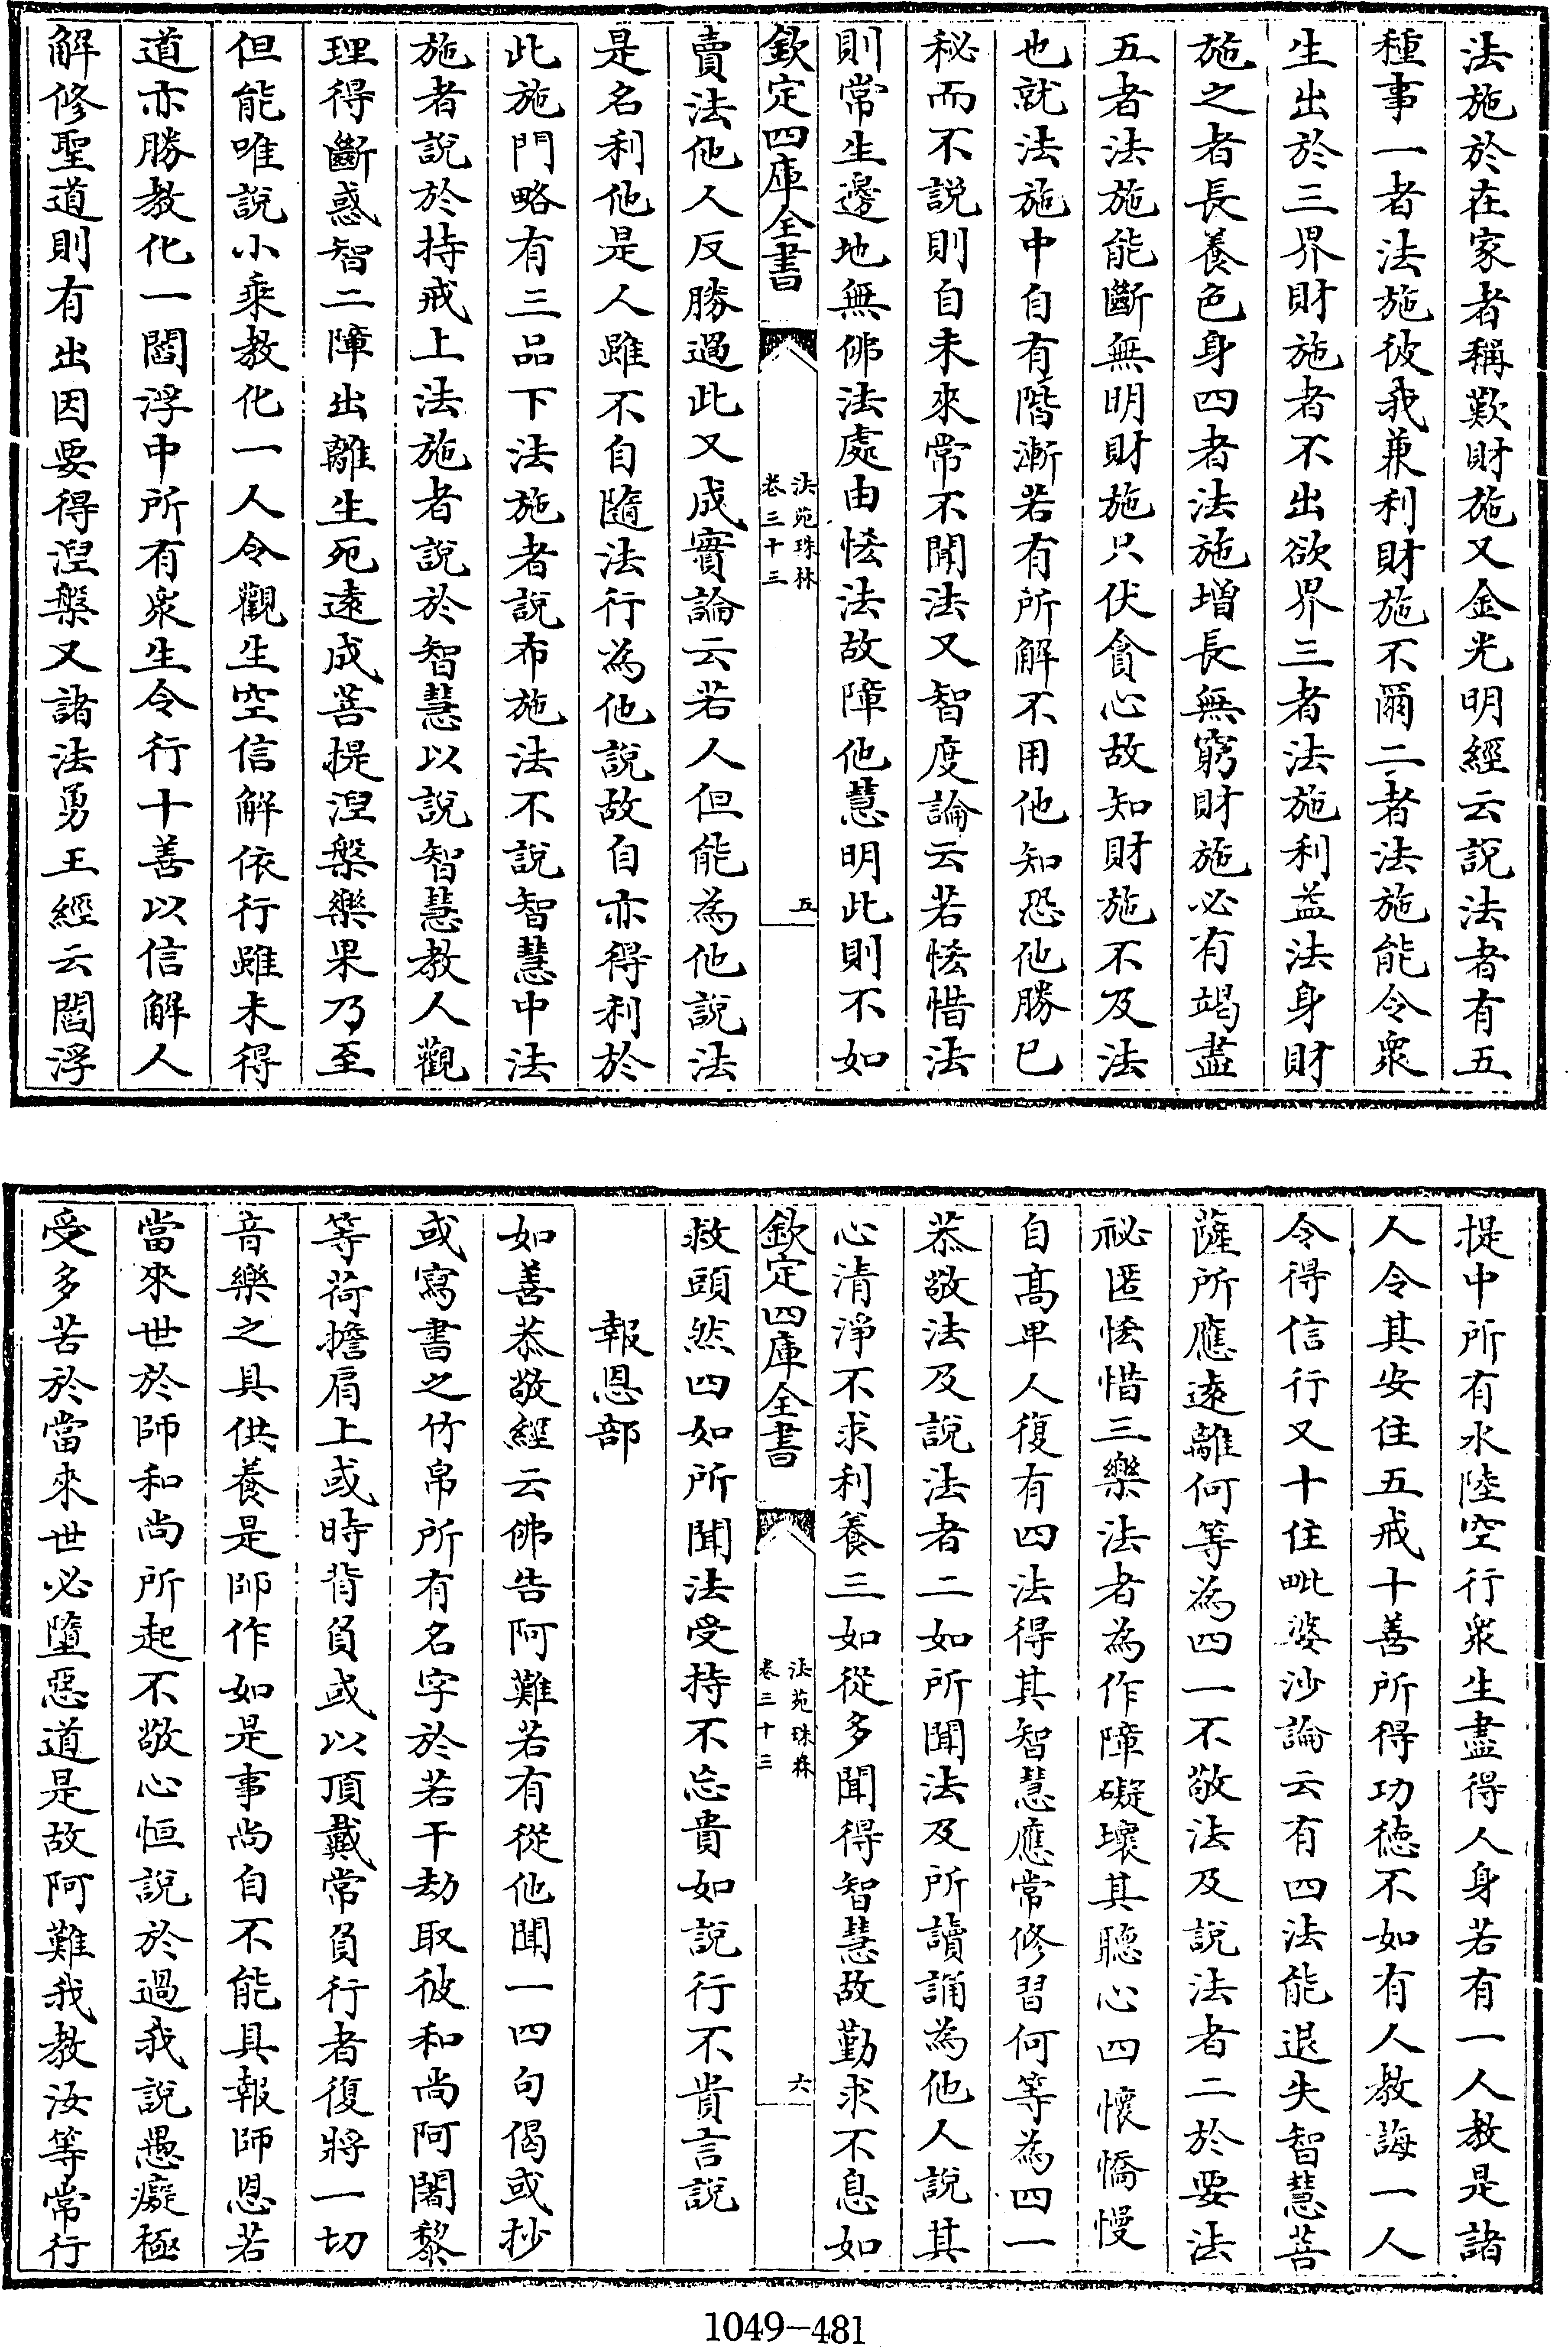 法施於在家者稱歎財施又金光明經云説法者有五
種事一者法施彼我兼利財施不爾二者法施能令衆
生出於三界財施者不出欲界三者法施利益法身財
施之者長養色身四者法施增長無窮財施必有竭盡
五者法施能斷無明財施只伏貪心故知財施不及法
也就法施中自有階漸若有所解不用他知恐他勝已
秘而不説則自未來常不聞法又智度論云若恡惜法
則常生邊地無佛法處由恡法故障他慧明此則不如
欽定四庫全書
法苑珠林
卷三十三
五
賣法他人反勝過此又成實論云若人但能為他說法
是名利他是人雖不自隨法行為他說故自亦得利於
此施門略有三品下法施者說布施法不說智慧中法
施者說於持戒上法施者說於智慧以說智慧教人觀
理得斷惑智二障出離生死遠成菩提涅槃樂果乃至
但能唯說小乘教化一人令觀生空信解依行雖未得
道亦勝教化一閻浮中所有衆生令行十善以信解人
解修聖道則有出因要得涅槃又諸法勇王經云閻浮
提中所有水陸空行衆生盡得人身若有一人教是諸
人令其安住五戒十善所得功德不如有人教誨一人
令得信行又十住毗婆沙論云有四法能退失智慧菩
薩所應遠離何等為四一不敬法及說法者二於要法
祕匿恡惜三樂法者為作障礙壞其聽心四懷憍慢
自髙卑人復有四法得其智慧應常修習何等為四一
恭敬法及說法者二如所聞法及所讀誦為他人說其
心清淨不求利養三如從多聞得智慧故勤求不息如
欽定四庫全書
法苑珠林
卷三十三
六
救頭然四如所聞法受持不忘貴如說行不貴言說
報恩部
如善恭敬經云佛告阿難若有從他聞一四句偈或抄
或寫書之竹帛所有名字於若干劫取彼和尚阿闍黎
等荷擔肩上或時背負或以頂戴常負行者復將一切
音樂之具供養是師作如是事尚自不能具報師恩若
當來世於師和尚所起不敬心恒說於過我說愚癡極
受多苦於當來世必墮惡道是故阿難我教汝等常行
1049-481